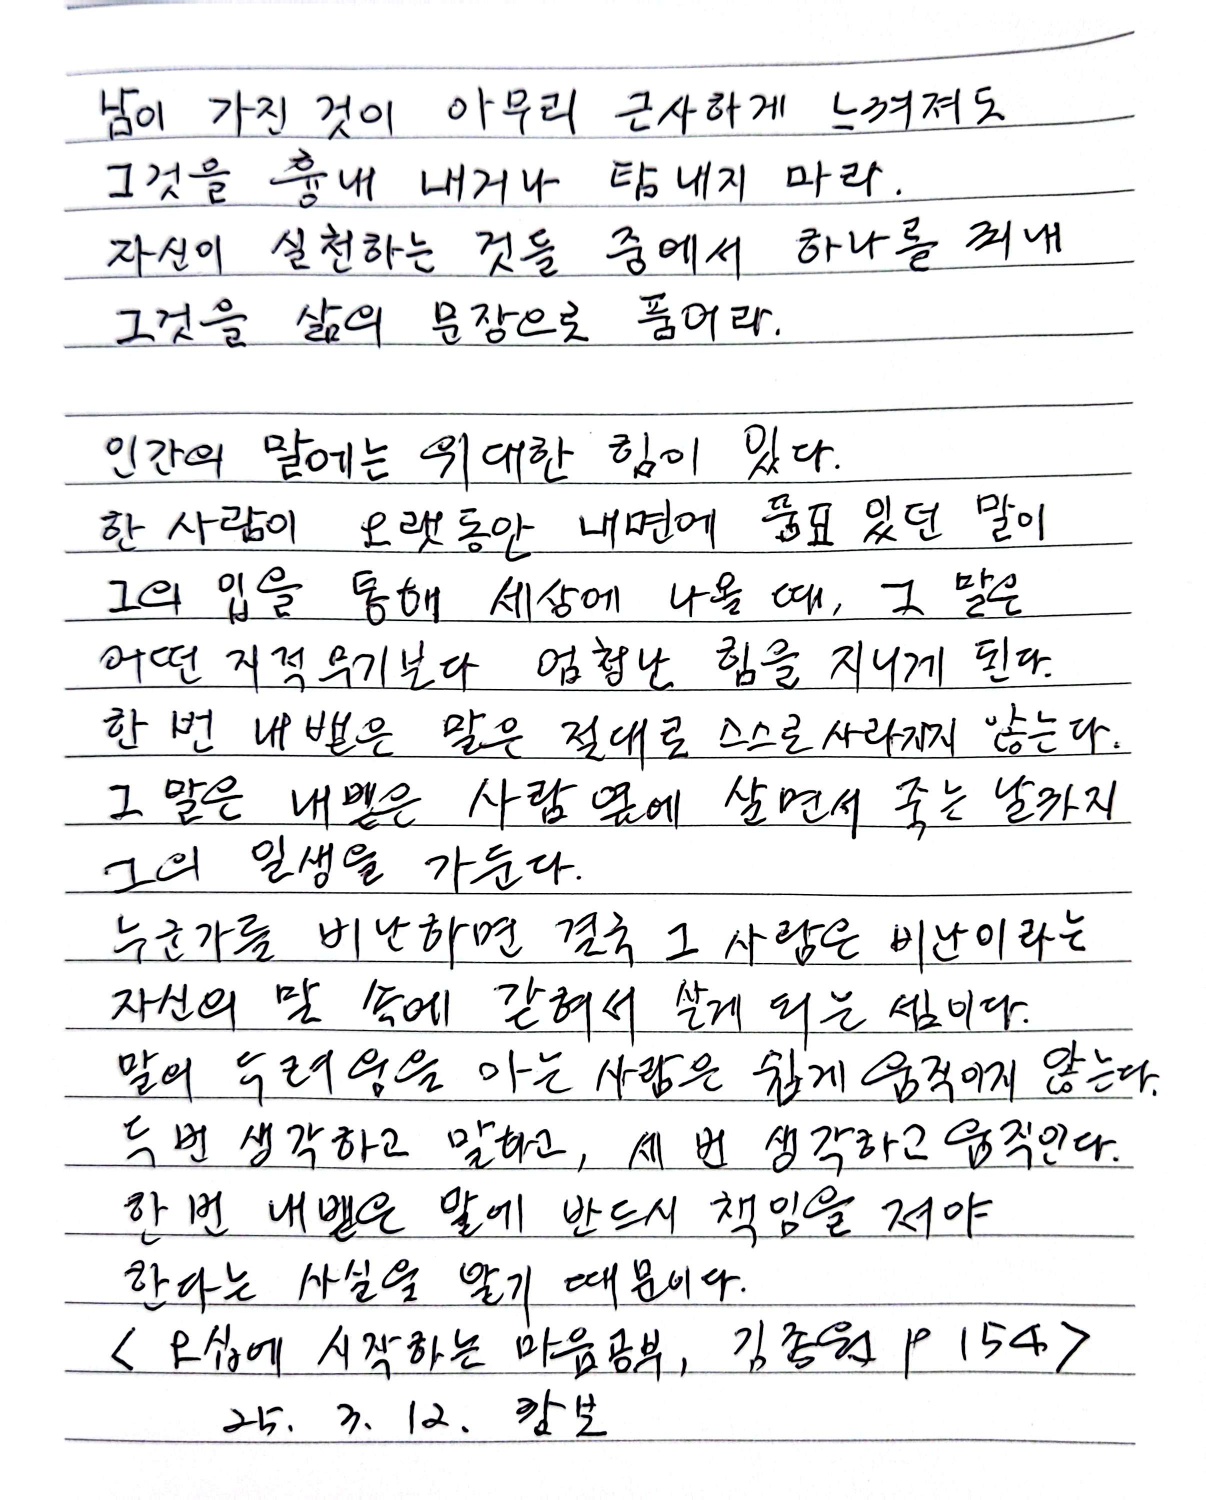 남이 가진 것이 아무리 근사하게 느껴져도
그것을 흉내 내거나 탐내지 마라.
자신이 실천하는 것들 중에서 하나를 꺼내
그것을 삶의 문장으로 품어라.
인간의 말에는 위대한 힘이 있다.
한 사람이 오랫동안 내면에 품고 있던 말이
그의 입을 통해 세상에 나올 때, 그 말은
어떤 지적 무기보다 엄청난 힘을 지니게 된다.
한 번 내뱉은 말은 절대로 스스로 사라지지 않는다.
그 말은 내뱉은 사람 옆에 살면서 죽는 날까지
그의 일생을 가둔다.
누군가를 비난하면 결국 그 사람은 비난이라는
자신의 말 속에 갇혀서 살게 되는 셈이다.
말의 두려움을 아는 사람은 쉽게 움직이지 않는다.
두 번 생각하고 말하고, 세 번 생각하고 움직인다.
한 번 내뱉은 말에 반드시 책임을 져야
한다는 사실을 알기 때문이다.
< 오십에 시작하는 마음공부, 김종원 p 154>
25. 3. 12. 캄보